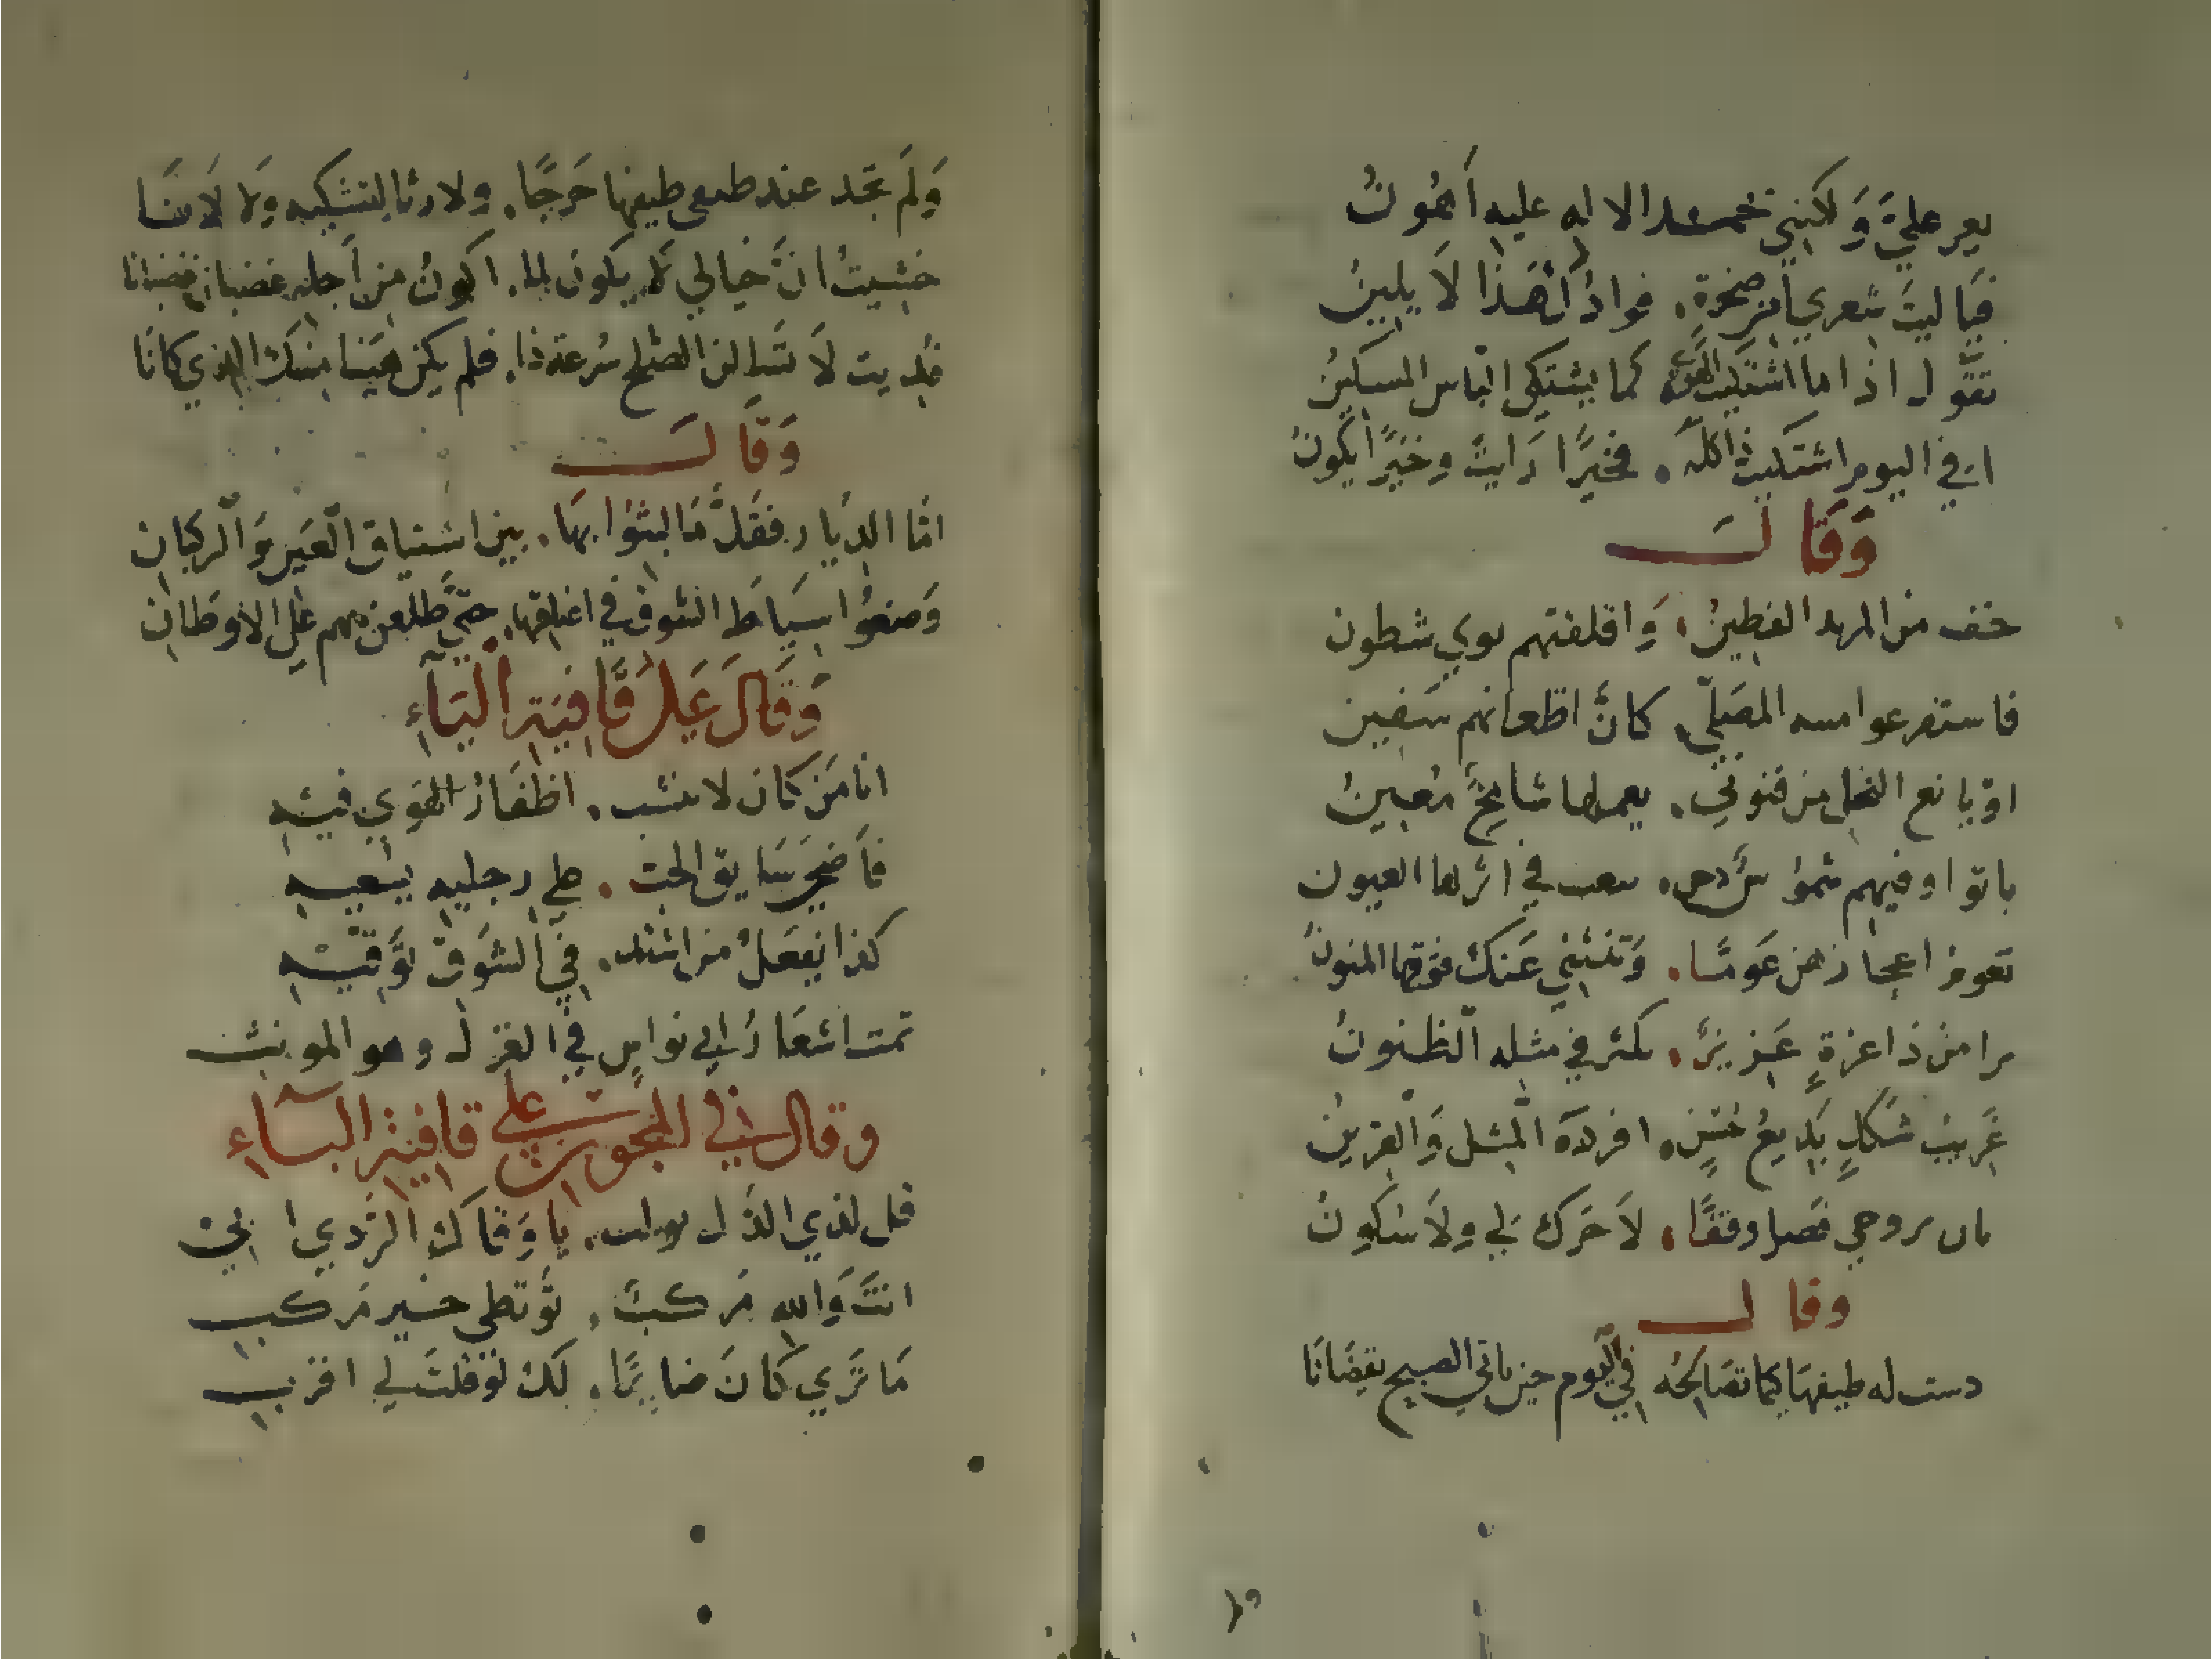 يعز عليَّ وَلكنني بحمد الاله عليه أهُونُ
فيا ليتَ شعري أمن صخرة. فوادك هَذا لاَ يلينُ
تقول اذا ما اشتكيت الهوى كما يشتكى البأس المسكينُ
افي اليوم اشتكيت ذاكله. فخيرًا رَايتَ وخيرًا يكونُ
وَقَالَ
خف من المربد القطينُ. وَاقلقتهم نوي شطون
فاستفرعوا المصَلّى كانَّ اظعانهم سَفين
او يانع النخل من قنونى. شامخٌ مُعينُ
باتوا وفيهم في اثرها العيون
تعوم اعجازهن عَومًا. وَتنثني عَنك فوقها المتونُ
يا من ذا عزةٍ عَزيزٌ. يكثر في مثله الظنونُ
غَريبُ شكلٍ بَديعُ حُسنٍ. افردَه المثل وَالقرينُ
بان بروحي فصار وقفًا. لاَ حَرك بي ولاَ سُكونُ
وقال
دست له طيفهَا كيما تصَالحُه في النوم حين يأتي الصبح يقضَانَا
وَلَم تجد عند طيفها حَرجًا. ولا رثا لتشكيه وَلا لَانَا
خشيتُ انَّ خيالي لا يكون لما. اكونُ من أجله غضبان غضبانا
فُديت لاَ تسالن الصلح سُرعة ذا. فلم يكن هَينا منك الذي كانَا
وَقَالَ
امَّا الديَار فقَلّ مَا لبثوا بهَا. بين اشتياق العَيس وَالركبان
وَضعُوا سيَاطَ الشوق في اعناقها. حتَّى طلعن بهم عَلى الاوطان
وَقَالَ عَلى قَافيَة اليَاء
انا مَن كان لا ينشب. اظفَارُ الهَوي فيْه
فاَضحى سَايق الحب. على رجليه يسعيه
كذا يفعَلُ من اشتد. في الشَوق تَوقيْه
تمت اشعَارُ ابي نواس في الغزل وهو المونث
وقال في المجون على قافية البآء
قل لذي الدَّل يا وَقاك الرَّدي ابيْ
انتَ وَالله مَركبٌ. تُوتطي خير مَركب
مَا تَري كَانَ ضايرًا. لَك لَو قلتَ لي اقرب